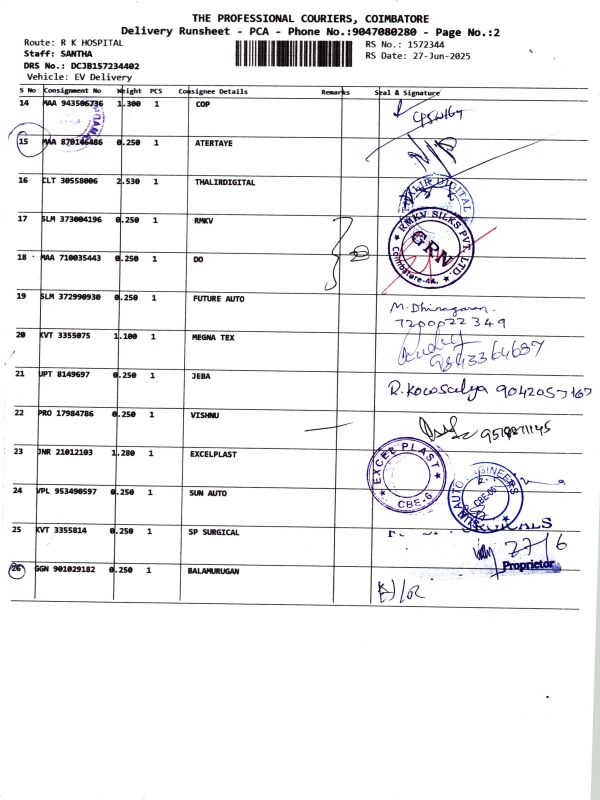 THE PROFESSIONAL COURIERS, COIMBATORE
Delivery Runsheet - PCA - Phone No.:9047080280 - Page No.:2
Route: R K HOSPITAL
Staff: SANTHA
DRS No.: DCJB157234402
Vehicle: EV Delivery
RS No.: 1572344
RS Date: 27-Jun-2025
S No Consignment No Weight PCS Consignee Details Remarks Seal & Signature
14 MAA 943506736 1.300 1 COP
15 MAA 870146486 0.250 1 ATERTAYE
16 CLT 30558006 2.530 1 THALIRDIGITAL
17 SLM 373004196 0.250 1 RMKV
RMKV SILKS PVT. LTD
GRN
Coimbatore-4A.
18 MAA 710035443 0.250 1 DO
19 SLM 372990930 0.250 1 FUTURE AUTO
M. Dhinagaran.
7200022349
20 KVT 3355075 1.100 1 MEGNA TEX
9843364687
21 UPT 8149697 0.250 1 JEBA
R. Kowsalya
22 PRO 17984786 0.250 1 VISHNU
23 JNR 21012103 1.280 1 EXCELPLAST
EXCEL PLAST
CBE-6
24 VPL 953490597 0.250 1 SUN AUTO
SUN AUTO ENGINEERS
CBE-06
25 KVT 3355814 0.250 1 SP SURGICAL
27/6
Proprietor
26 GGN 901029182 0.250 1 BALAMURUGAN